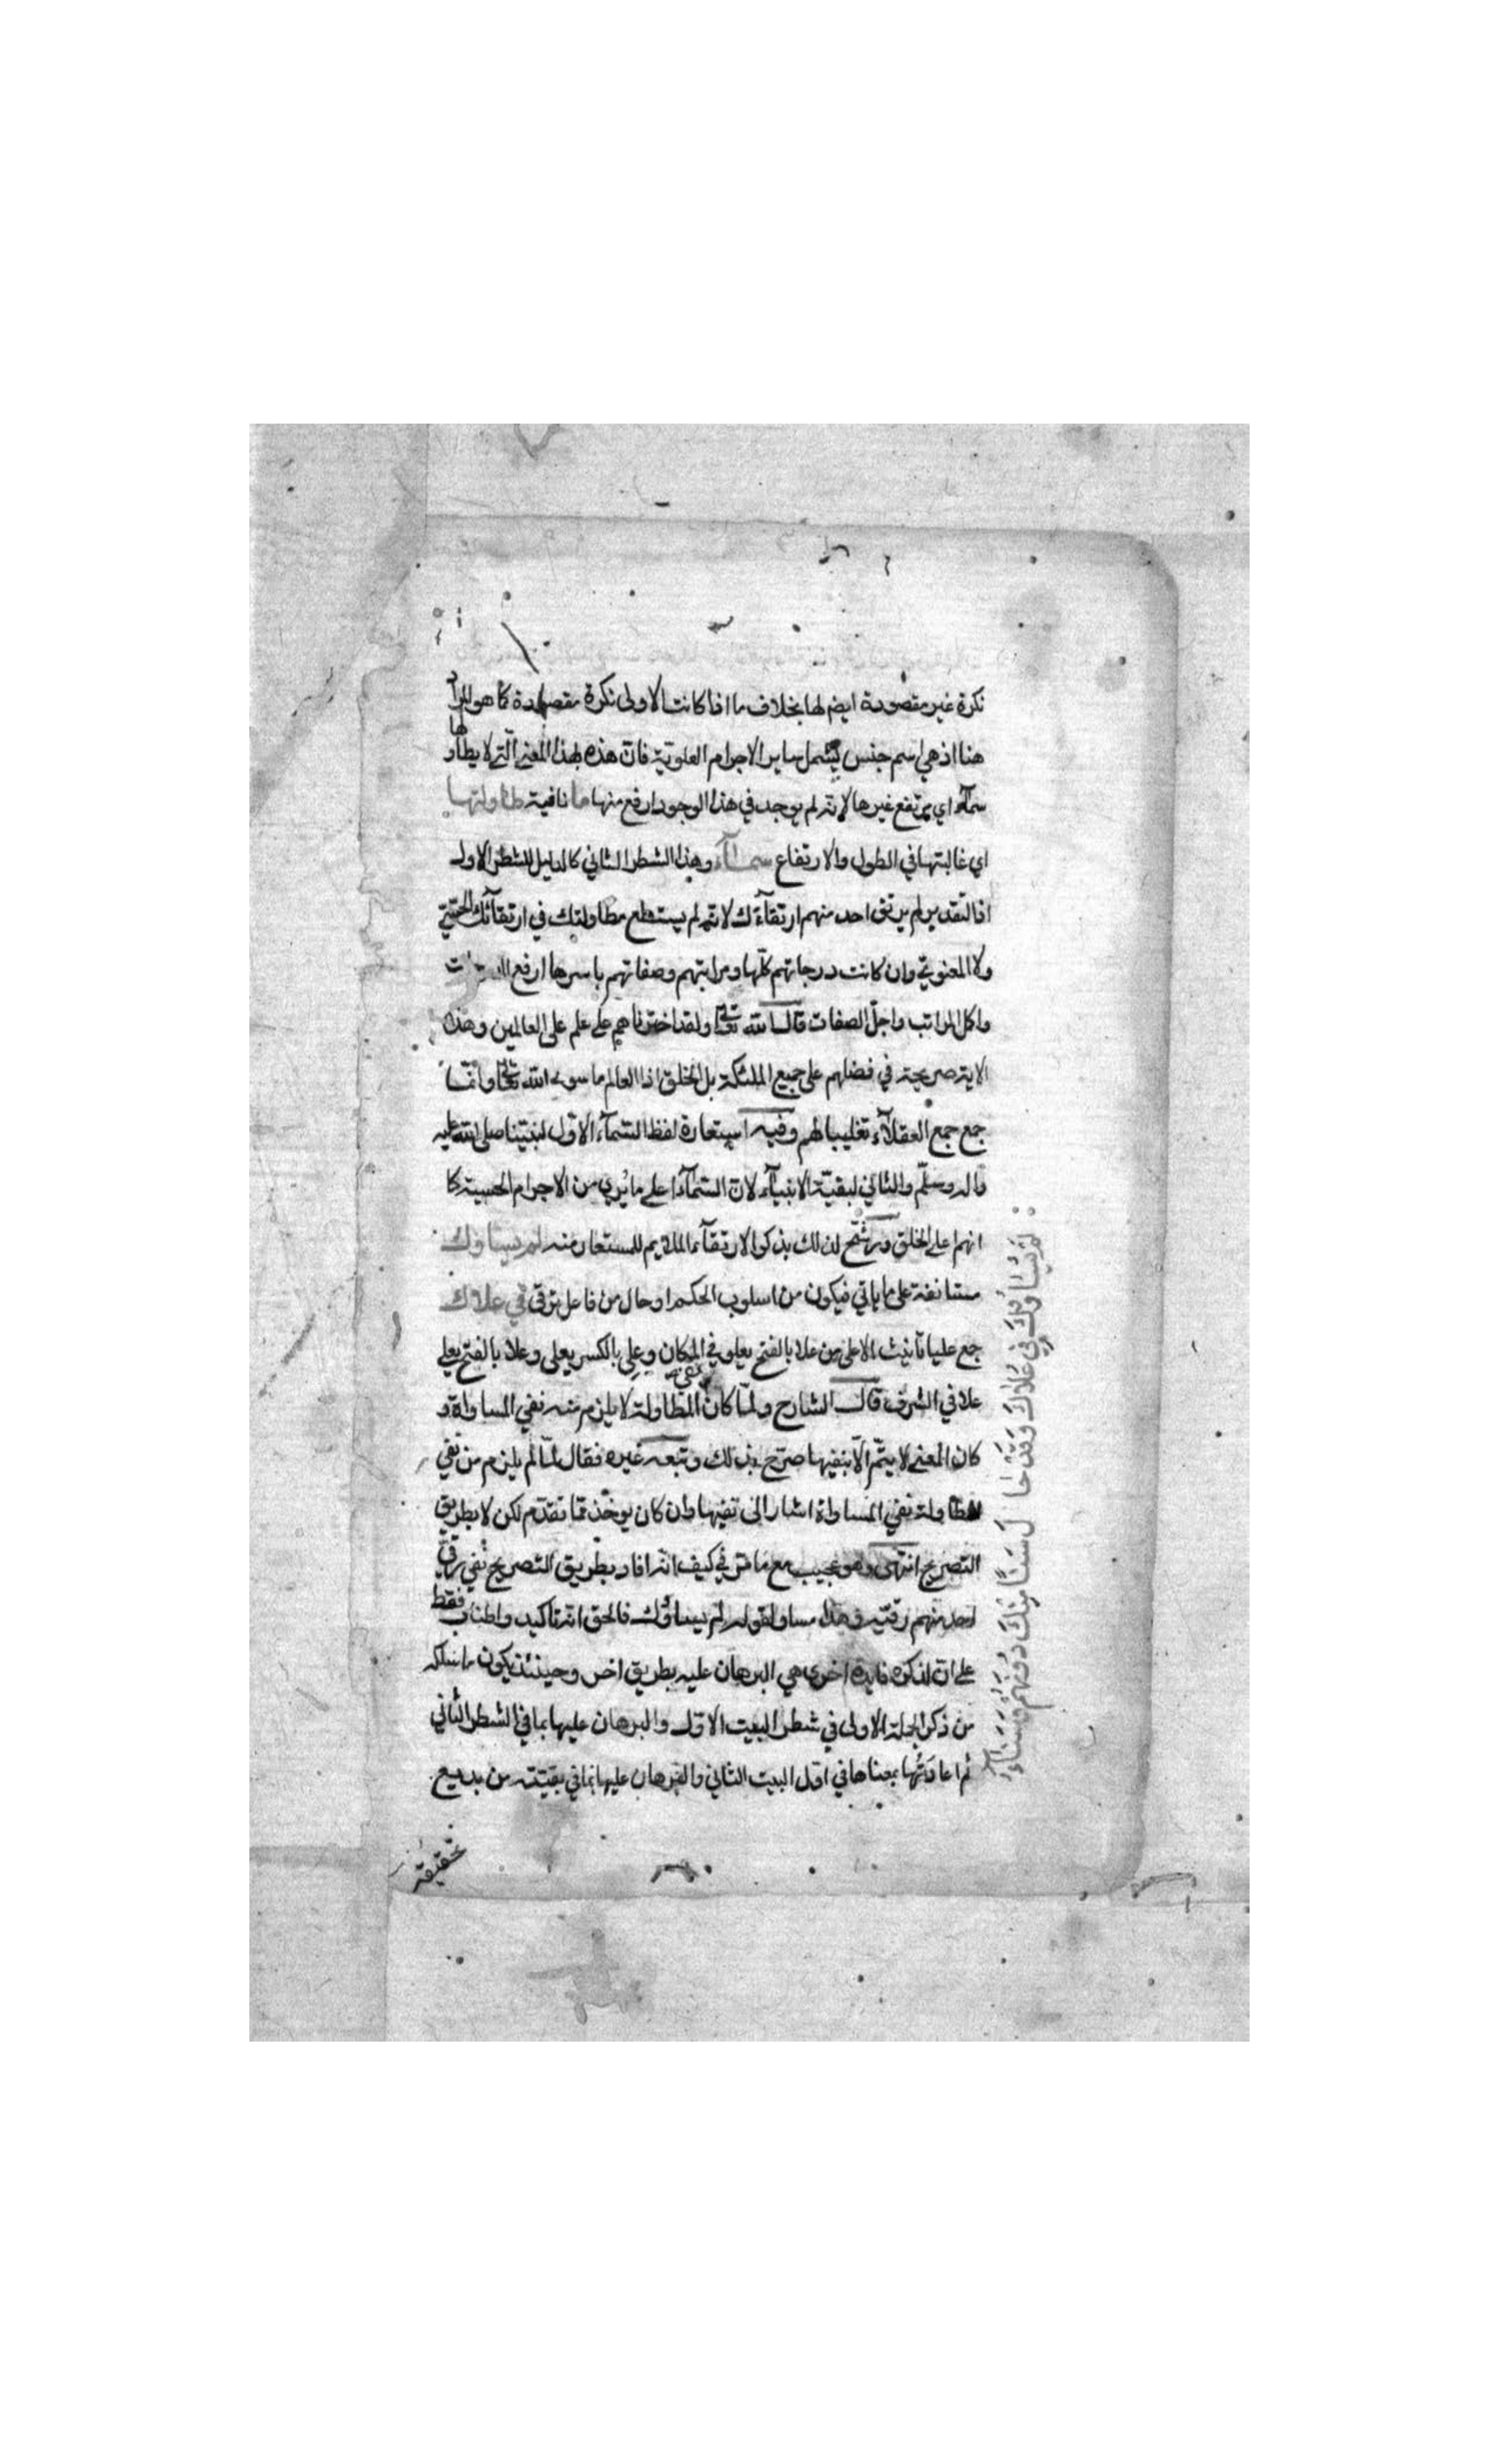 نكرة غير مقصودة ايضم لها بخلاف ما اذا كانت الاولى نكرة مقصودة كما هو المراد
هنا اذ هي اسم جنس يشمل ساير الاجرام العلوية فان هذه لهذا المعنى التي لا يطاولها
سمآء اي يرتفع غيرها لانه لم يوجد في هذا الوجود ارفع منها ما نافية طاولتها
اي غالبتها في الطول والارتفاع سمآء وهذا الشطر الثاني كالدليل للشطر الاول
اذ التقدير لم يرتق احد منهم ارتقآءك لانه لم يستطع مطاولتك في ارتقآئك الحسّيّ
ولا المعنويّ وان كانت درجاتهم كلّها ومراتبهم وصفاتهم باسرها ارفع
واكمل المراتب واجلّ الصفات قال الله تعالى ولقد اخترناهم على علم على العالمين وهذه
الاية صريحة في فضلهم على جميع الملئكة بل الخلق اذ العالم ما سوى الله تعالى وانما
جمع جمع العقلآء تغليبا لهم وفيه استعارة لفظ السّمآء الاوّل لنبيّنا صلى الله عليه
واله وسلّم والثاني لبقيّة الانبيآء لانّ السّمآء اعلى ما يُري من الاجرام الحسية كما
انهم اعلى الخلق ورشّح لذلك بذكر الارتقآء الملايم للمستعار منه لم يساووك
مستانفة على ما ياتي فيكون من اسلوب الحكيم او حال من فاعل ترقى في علاك
جمع عليا تانيث الاعلى من علا بالفتح يعلو في المكان وعلِي بالكسر يعلى وعلا بالفتح يعلى
علا في الشرف قال الشارح ولمّا كان نفي المطاولة لا يلزم منه نفي المساواة و
كان المعنى لا يتمّ الّا بنفيها صرّح بذلك وتبعه غيره فقال لمّا لم يلزم من نفي
المطاولة نفي المساواة اشار الى نفيها وان كان يوخذ ممّا تقدّم لكن لا بطريق
التصريح انتهى وهو عجيب مع ما مرّ في كيف انّه افاد بطريق التصريح نفي ترقّي
احد منهم رقيّه وهذا مساو لقوله لم يساووك فالحق انّه تاكيد واطناب فقط
على انّ لذكره فايدة اخرى هي البرهان عليه بطريق اخر وحينئذ يكون ما سلكه
من ذكر الجملة الاولى في شطر البيت الاوّل والبرهان عليها بما في الشطر الثاني
ثم اعادتُها بمعناها في اوّل البيت الثاني والبرهان عليها بما في بقيّته من بديع
تحقيقه
لَمْ يُسَاوُوكَ فِي عُلَاكَ وَقَدْ حَالَ سَنًا مِنْكَ دُونَهُمْ وَسَنَآءُ